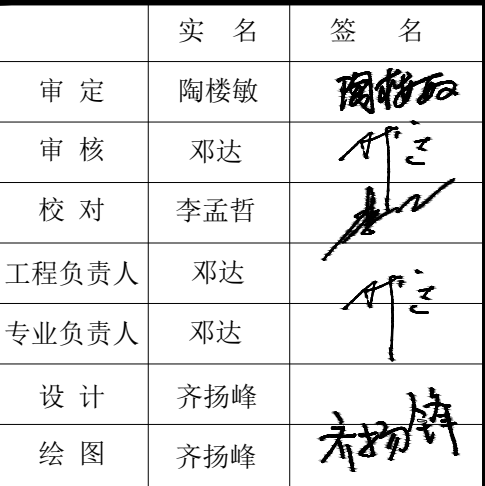 实 名 签 名
审 定 陶楼敏 陶楼敏
审 核 邓达 邓达
校 对 李孟哲
工程负责人 邓达 邓达
专业负责人 邓达
设 计 齐扬峰 齐扬锋
绘 图 齐扬峰